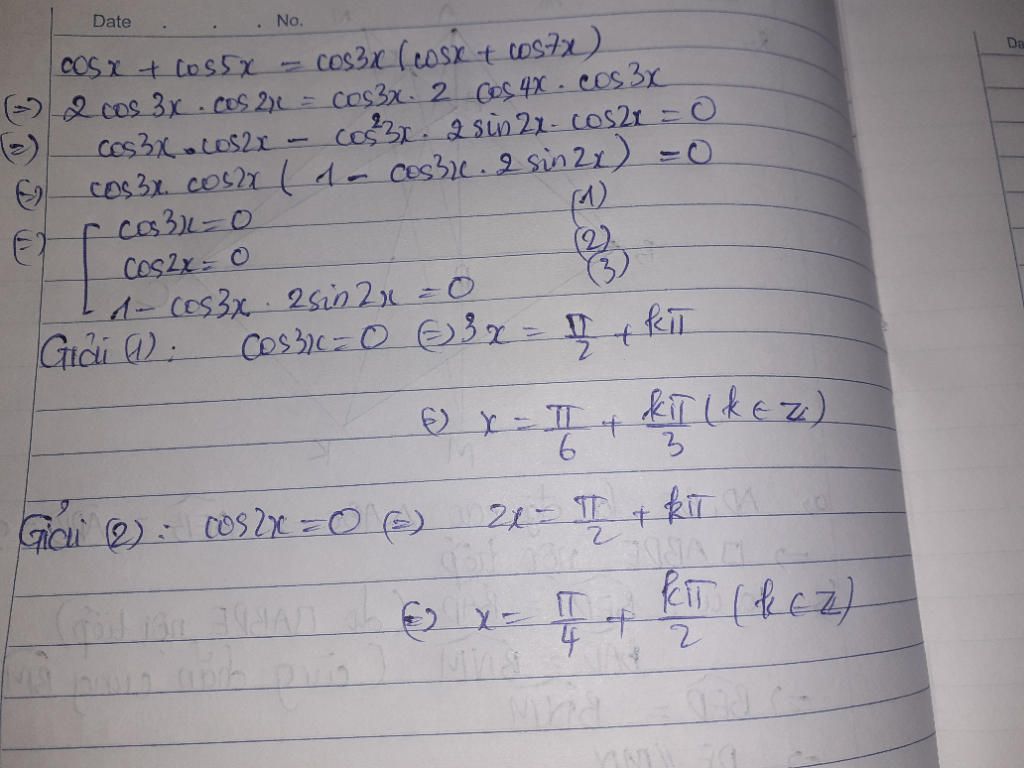 Date . . . No.
cosx + cos5x = cos3x (cosx + cos7x)
(=) 2 cos 3x . cos 2x = cos3x . 2 cos 4x . cos 3x
(=) cos3x . cos2x - cos²3x . 2 sin 2x . cos2x = 0
(=) cos3x. cos2x ( 1 - cos3x . 2 sin 2x ) = 0
(=) [ cos3x = 0 (1)
cos2x = 0 (2)
1 - cos3x . 2sin 2x = 0 (3)
Giải (1) : cos3x = 0 (=) 3x = π/2 + kπ
(=) x = π/6 + kπ/3 (k ∈ Z)
Giải (2) : cos2x = 0 (=) 2x = π/2 + kπ
(=) x = π/4 + kπ/2 (k ∈ Z)